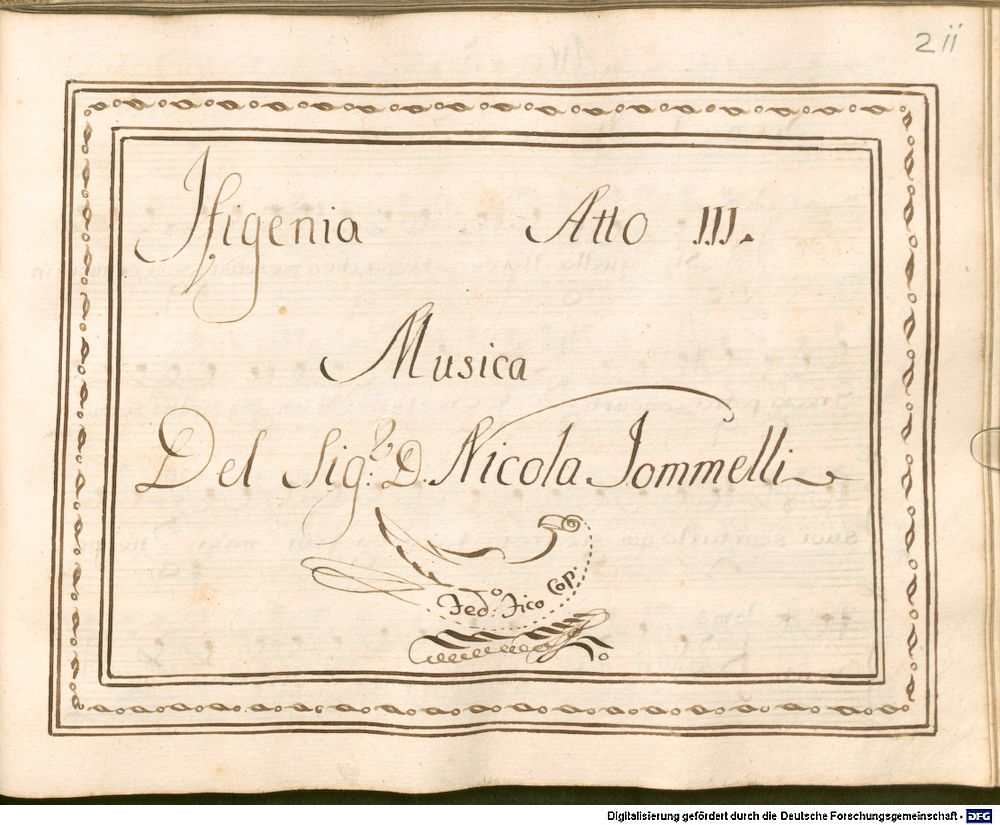 2ii
Ifigenia Atto III.
Musica
Del Sig.r D. Nicola Jommelli
Fed.o Fico Cop.
Digitalisierung gefördert durch die Deutsche Forschungsgemeinschaft - DFG